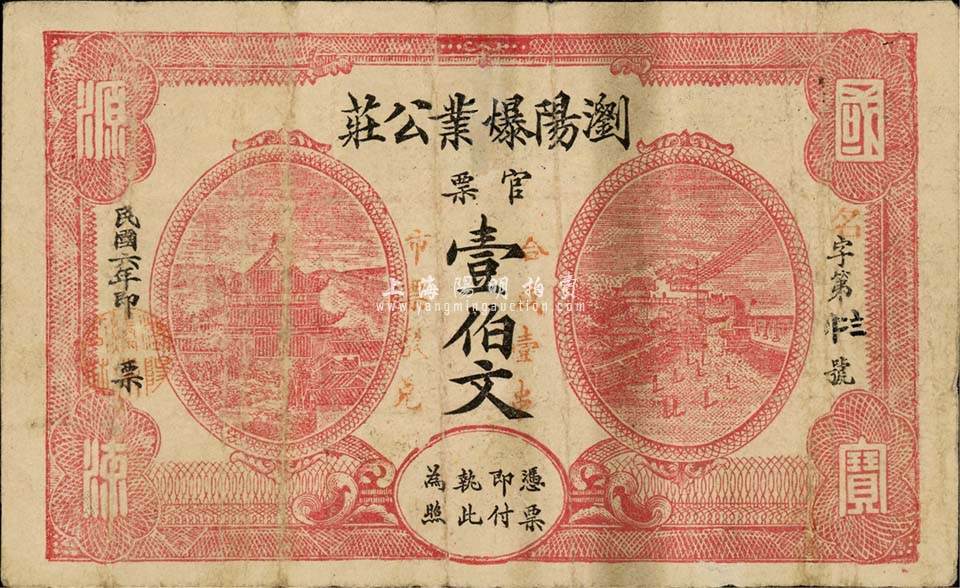 瀏陽爆業公莊
官票
壹伯文
憑票
即付
執此
為照
名字第
號
民國六年印
票
國
寶
源
流
市
兑
上海陽明拍賣
www.yangmingauction.com